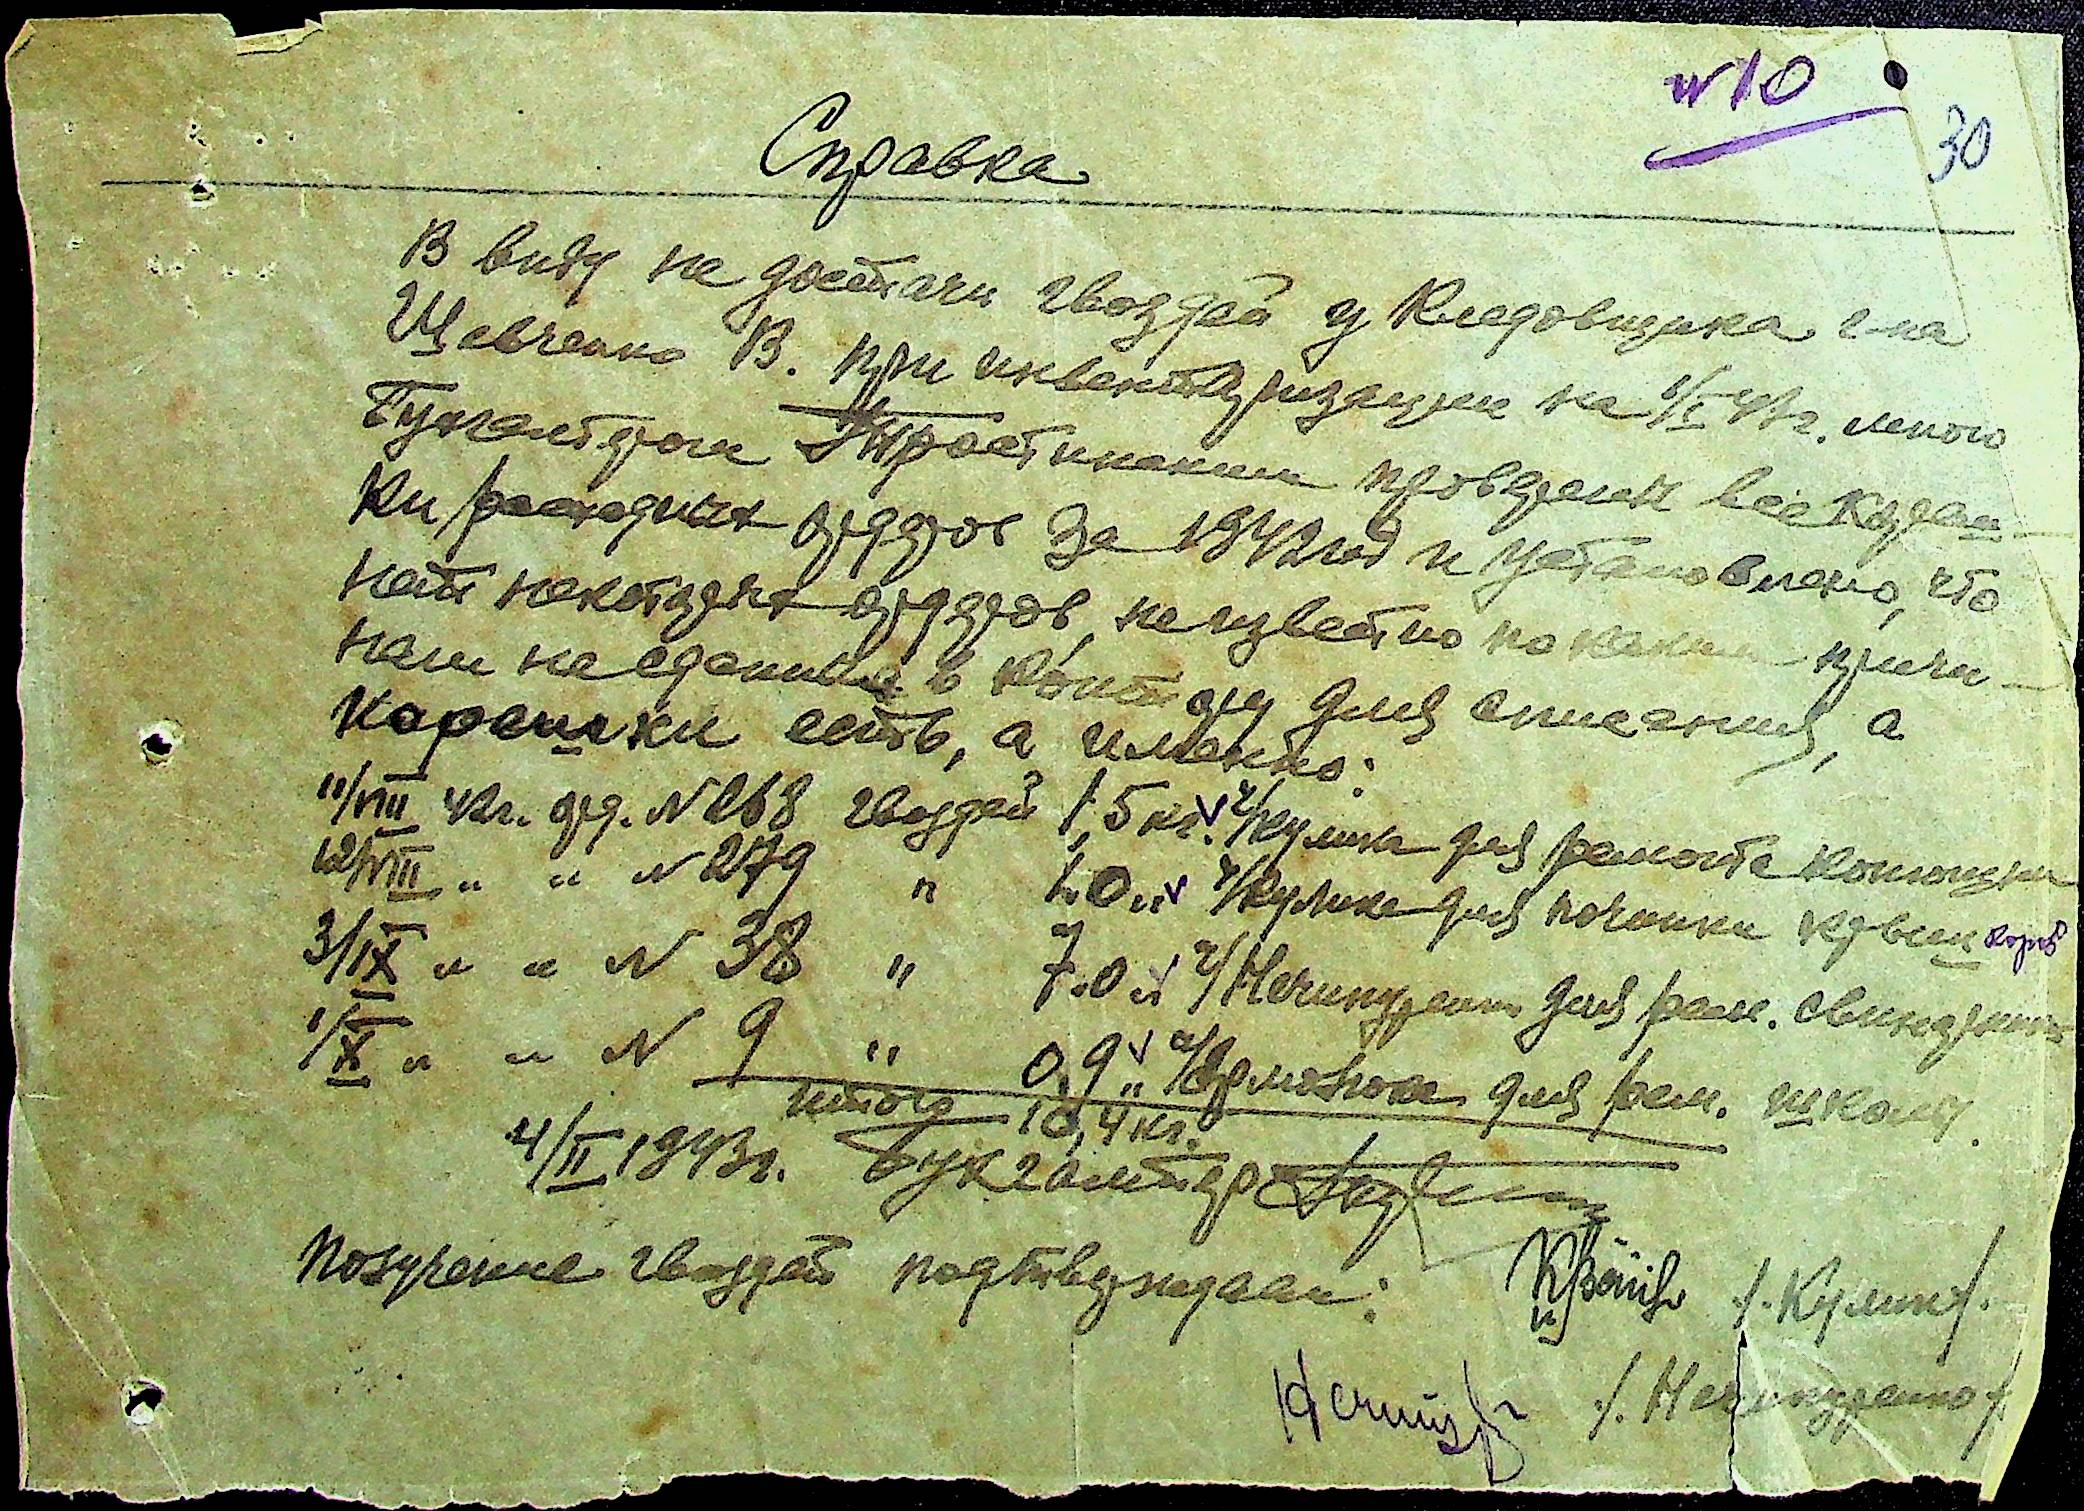 № 10
30
Справка
В виду не достачи гвоздей у Кладовщика г-на
Шевченко В. при инвентаризации на 1/I 43г. мною
Бухгалтером проверены все кореш-
ки расходных ордеров за 1942 год и установлено, что
нет некоторых ордеров, неизвестно по каким причи-
нам не сданных в контору для списания, а
корешки есть, а именно:
11/VIII 42г. орд. № 268 гвоздей 1,5 кг. ч/Кулика для ремонта конюшни
12/VIII " " № 279 " 1.0 " ч/Кулика для починки крыши
3/IX " " № 38 " 7.0 " ч/Нечипуренко для рем. свинарника
1/X " " № 9 " 0,9 " ч/ для рем. школы.
итого 10,4 кг.
4/II 1943г. Бухгалтер
Получение гвоздей подтверждаем: /. Кулик /.
/. Нечипуренко /.